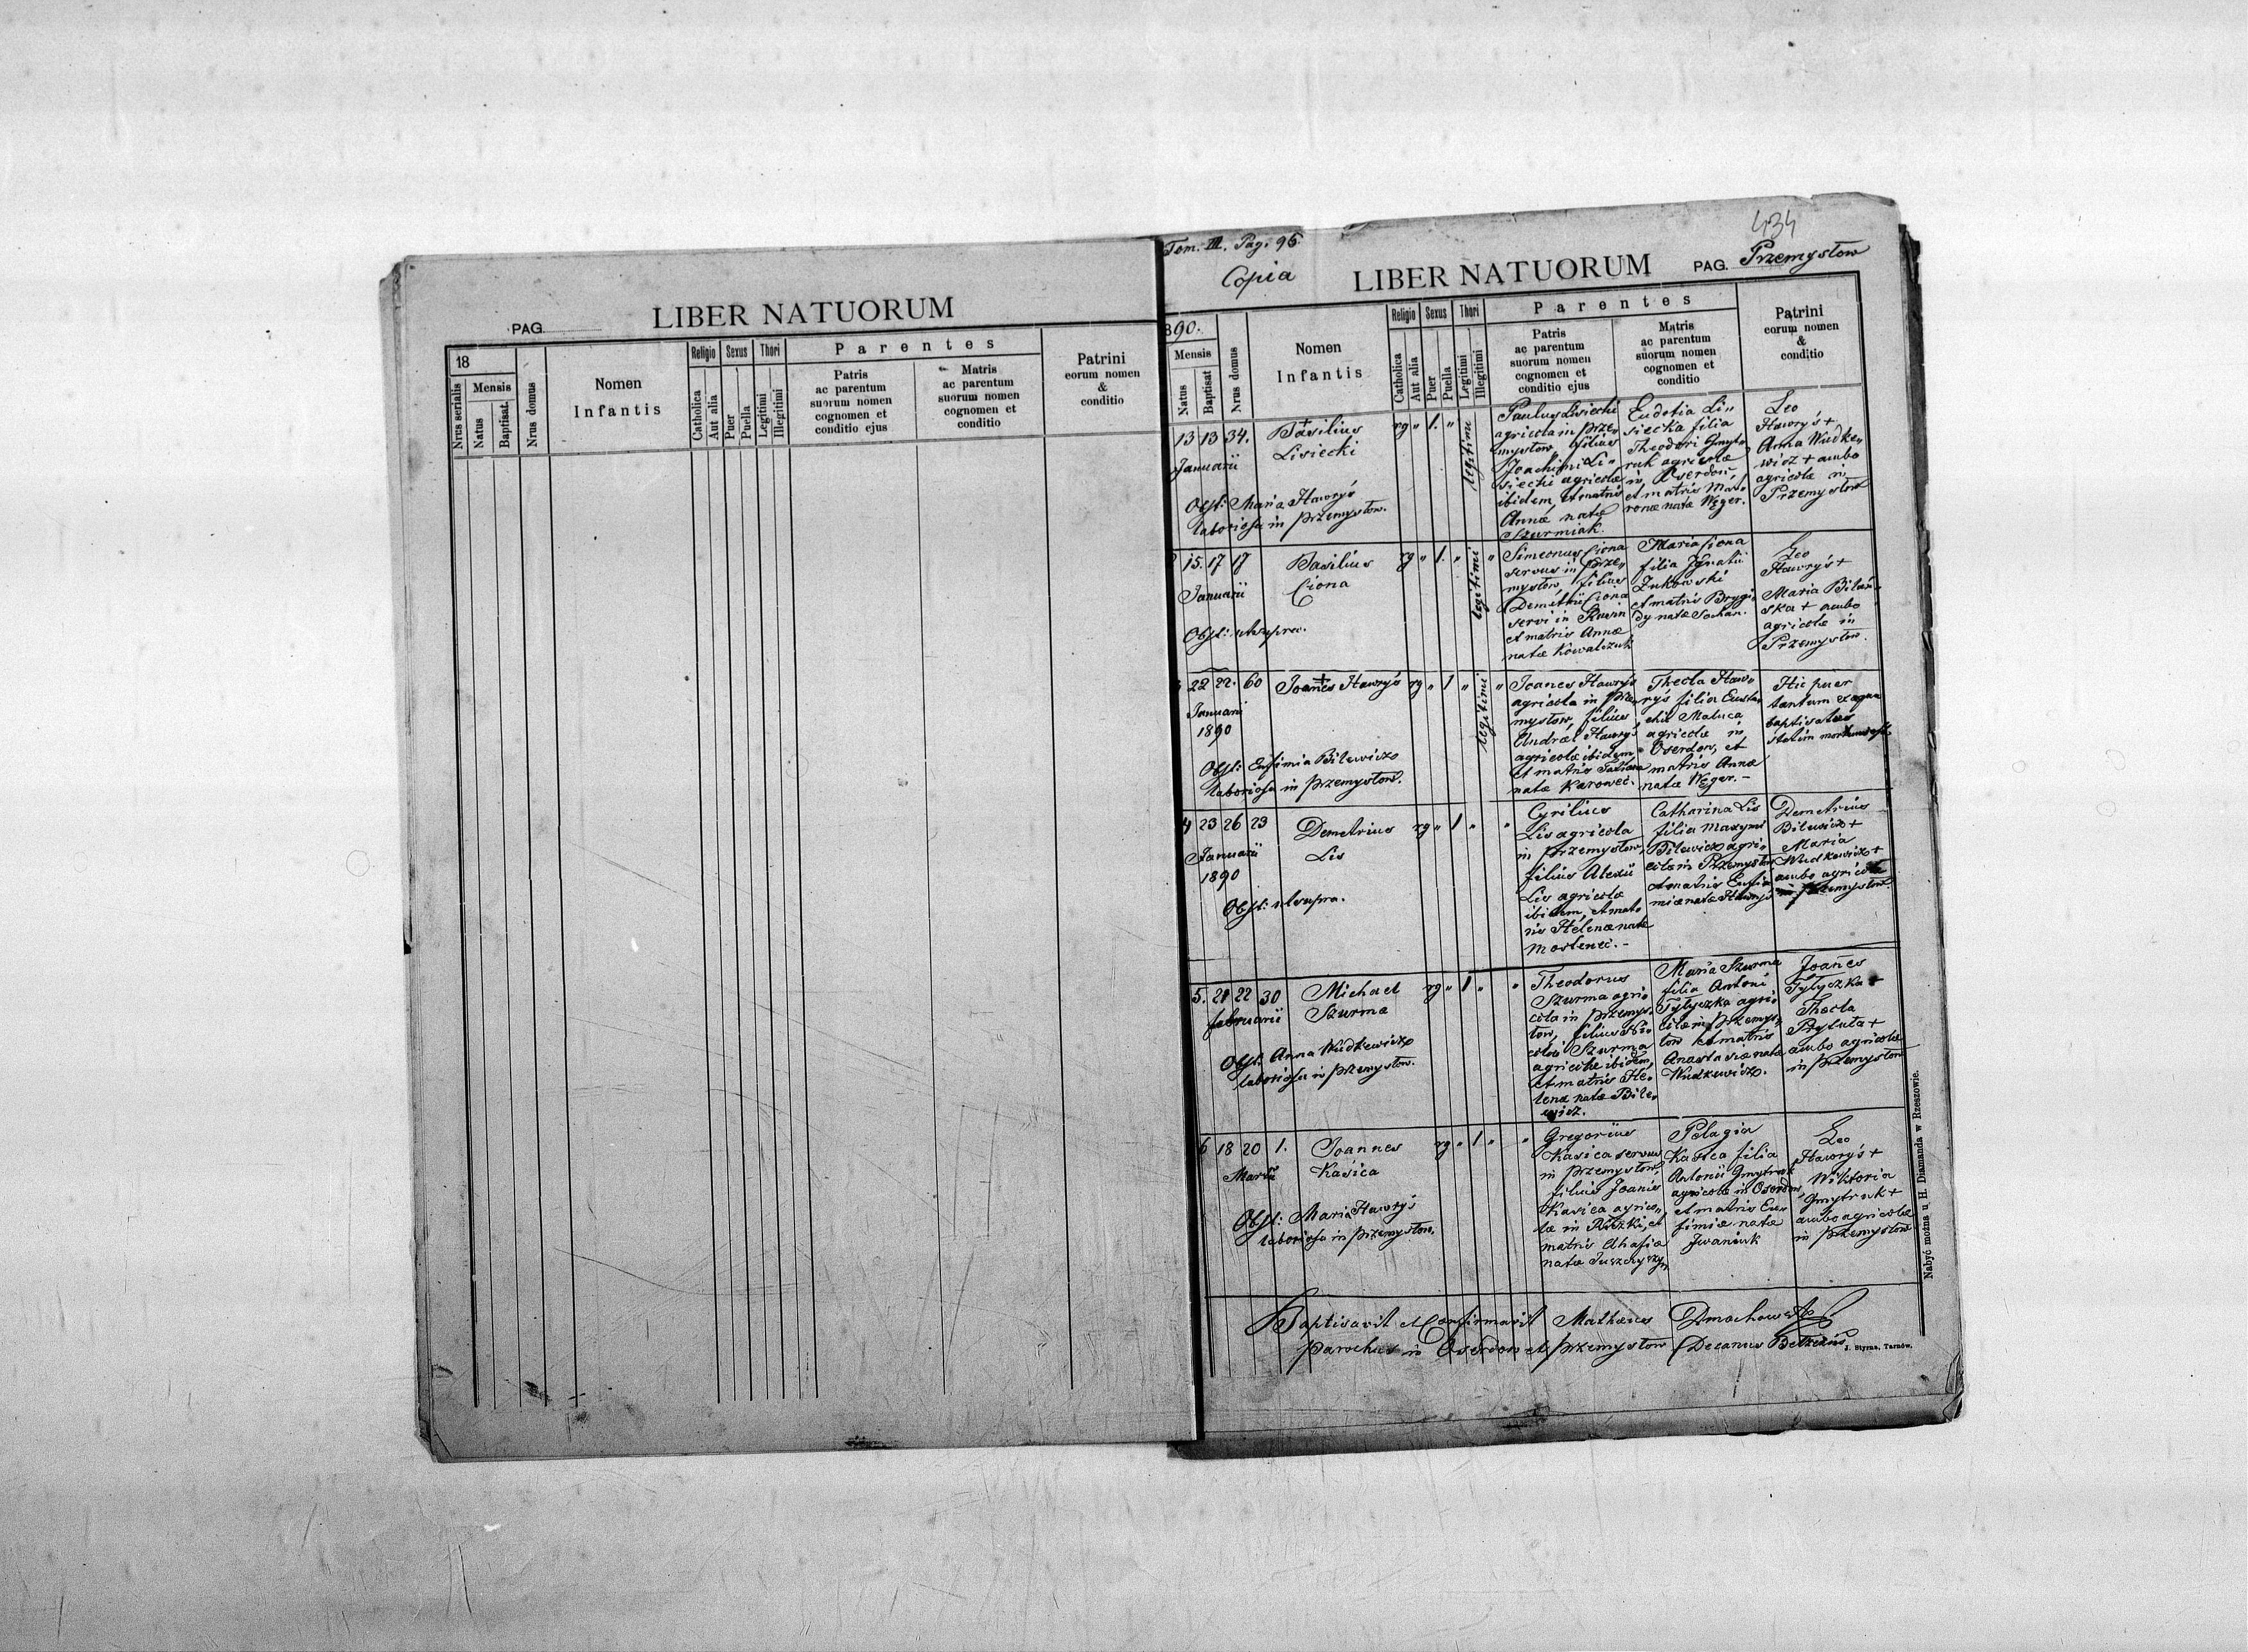 PAG.
LIBER NATUORUM
18
Nrus serialis
Mensis
Natus
Baptisat.
Nrus domus
Nomen
Infantis
Religio
Catholica
Aut alia
Sexus
Puer
Puella
Thori
Legitimi
Illegitimi
Parentes
Patris
ac parentum
suorum nomen
cognomen et
conditio ejus
Matris
ac parentum
suorum nomen
cognomen et
conditio
Patrini
eorum nomen
&
conditio
434
Tom. III. Pag. 95.
Copia
LIBER NATUORUM
PAG. Przemysłow
890.
Mensis
Natus
Baptisat
Nrus domus
Nomen
Infantis
Religio
Catholica
Aut alia
Sexus
Puer
Puella
Thori
Legitimi
Illegitimi
Parentes
Patris
ac parentum
suorum nomen
cognomen et
conditio ejus
Matris
ac parentum
suorum nomen
cognomen et
conditio
Patrini
eorum nomen
&
conditio
13 13 34.
Januarii
Basilius
Lisiecki
Obst: Maria Hawryś
laboriosa in Przemysłow.
rg " 1. "
legitimi
Paulus Lisiecki
agricola in Prze„
mysłow filius
Joachimi Li„
siecki agricolæ
ibidem, et matris
Annæ natæ
Szurmiak.
Eudotia Li„
siecka filia
Theodori Gmyt„
ruk agricolæ
in Oserdow
et matris Mat„
ronæ natæ Węger.
Leo
Hawryś +
Anna Wudke„
wicz + ambo
agricolæ in
Przemysłow
15. 17 17
Januarii
Basilius
Ciona
Obst: ut supra.
rg " 1. "
legitimi
"
Simeonus Ciona
servus in Prze„
mysłow filius
Demetrii Ciona
servi in Rusin
et matris Annæ
natæ Kowalczuk
Maria Ciona
filia Ignatii
Zukowski
et matris Brygi„
dy natæ Sochan.
Leo
Hawryś +
Maria Bilań„
ska + ambo
agricolæ in
Przemysłow.
22 22. 60
Januarii
1890
Joanes Hawryś
Obst: Eufimia Bilewicz
laboriosa in Przemysłow.
rg " 1 "
legitimi
"
Joanes Hawryś
agricola in Prze„
mysłow, filius
Andreæ Hawryś
agricolæ ibidem
et matris Tatianæ
natæ Karoweć.
Thecla Haw„
ryś filia Eusta„
chii Maluca
agricolæ in
Oserdow, et
matris Annæ
natæ Węger. –
Hic puer
tantum ex aqua
baptisatus
statim mortuus est.
4 23 26 23
Januarii
1890
Demetrius
Lis
Obst: ut supra.
rg " 1 " "
Cyrilius
Lis agricola
in Przemysłow
filius Alexii
Lis agricolæ
ibidem, et mat„
ris Helenæ natæ
Mosteneć. –
Catharina Lis
filia Maxymi
Bilewicz agri„
colæ in Przemysłow
et matris Eufi„
miæ natæ Hawryś
Demetrius
Bilewicz +
Maria
Wudkewicz +
ambo agricolæ
in Przemysłow
5. 21 22 30
februarii
Michael
Szurma
Obst: Anna Wudkewicz
laboriosa in Przemysłow.
rg " 1 " "
Theodorus
Szurma agri„
cola in Przemys„
łow, filius Ni„
colai Szurma
agricolæ ibidem,
et matris He„
lenæ natæ Bile„
wicz.
Maria Szurma
filia Antoni
Tytyczka agri„
colæ in Przemys„
łow et matris
Anastasiæ natæ
Wudkewicz.
Joanes
Tytyczka +
Thecla
Prytuła +
ambo agricolæ
in Przemysłow
6 18 20 1.
Martii
Joannes
Kasica
Obst: Maria Hawryś
laboriosa in Przemysłow.
rg " 1 " "
Gregorius
Kasica servus
in Przemysłow,
filius Joanis
Kasica agrico„
læ in Rżeczki, et
matris Ahafiæ
natæ Juszczyszyn
Pelagia
Kasica filia
Antonii Gmytruk
agricolæ in Oserdow
et matris Eu„
fimiæ natæ
Iwaniuk
Leo
Hawryś +
Wiktoria
Gmytruk +
ambo agricolæ
in Przemysłow
Baptisavit et Confirmavit Matheus Dmochowski
parochus in Oserdow et Przemysłow Decanus Bełzensis
J. Styrna, Tarnów.
Nabyć można u H. Diamanda w Rzeszowie.